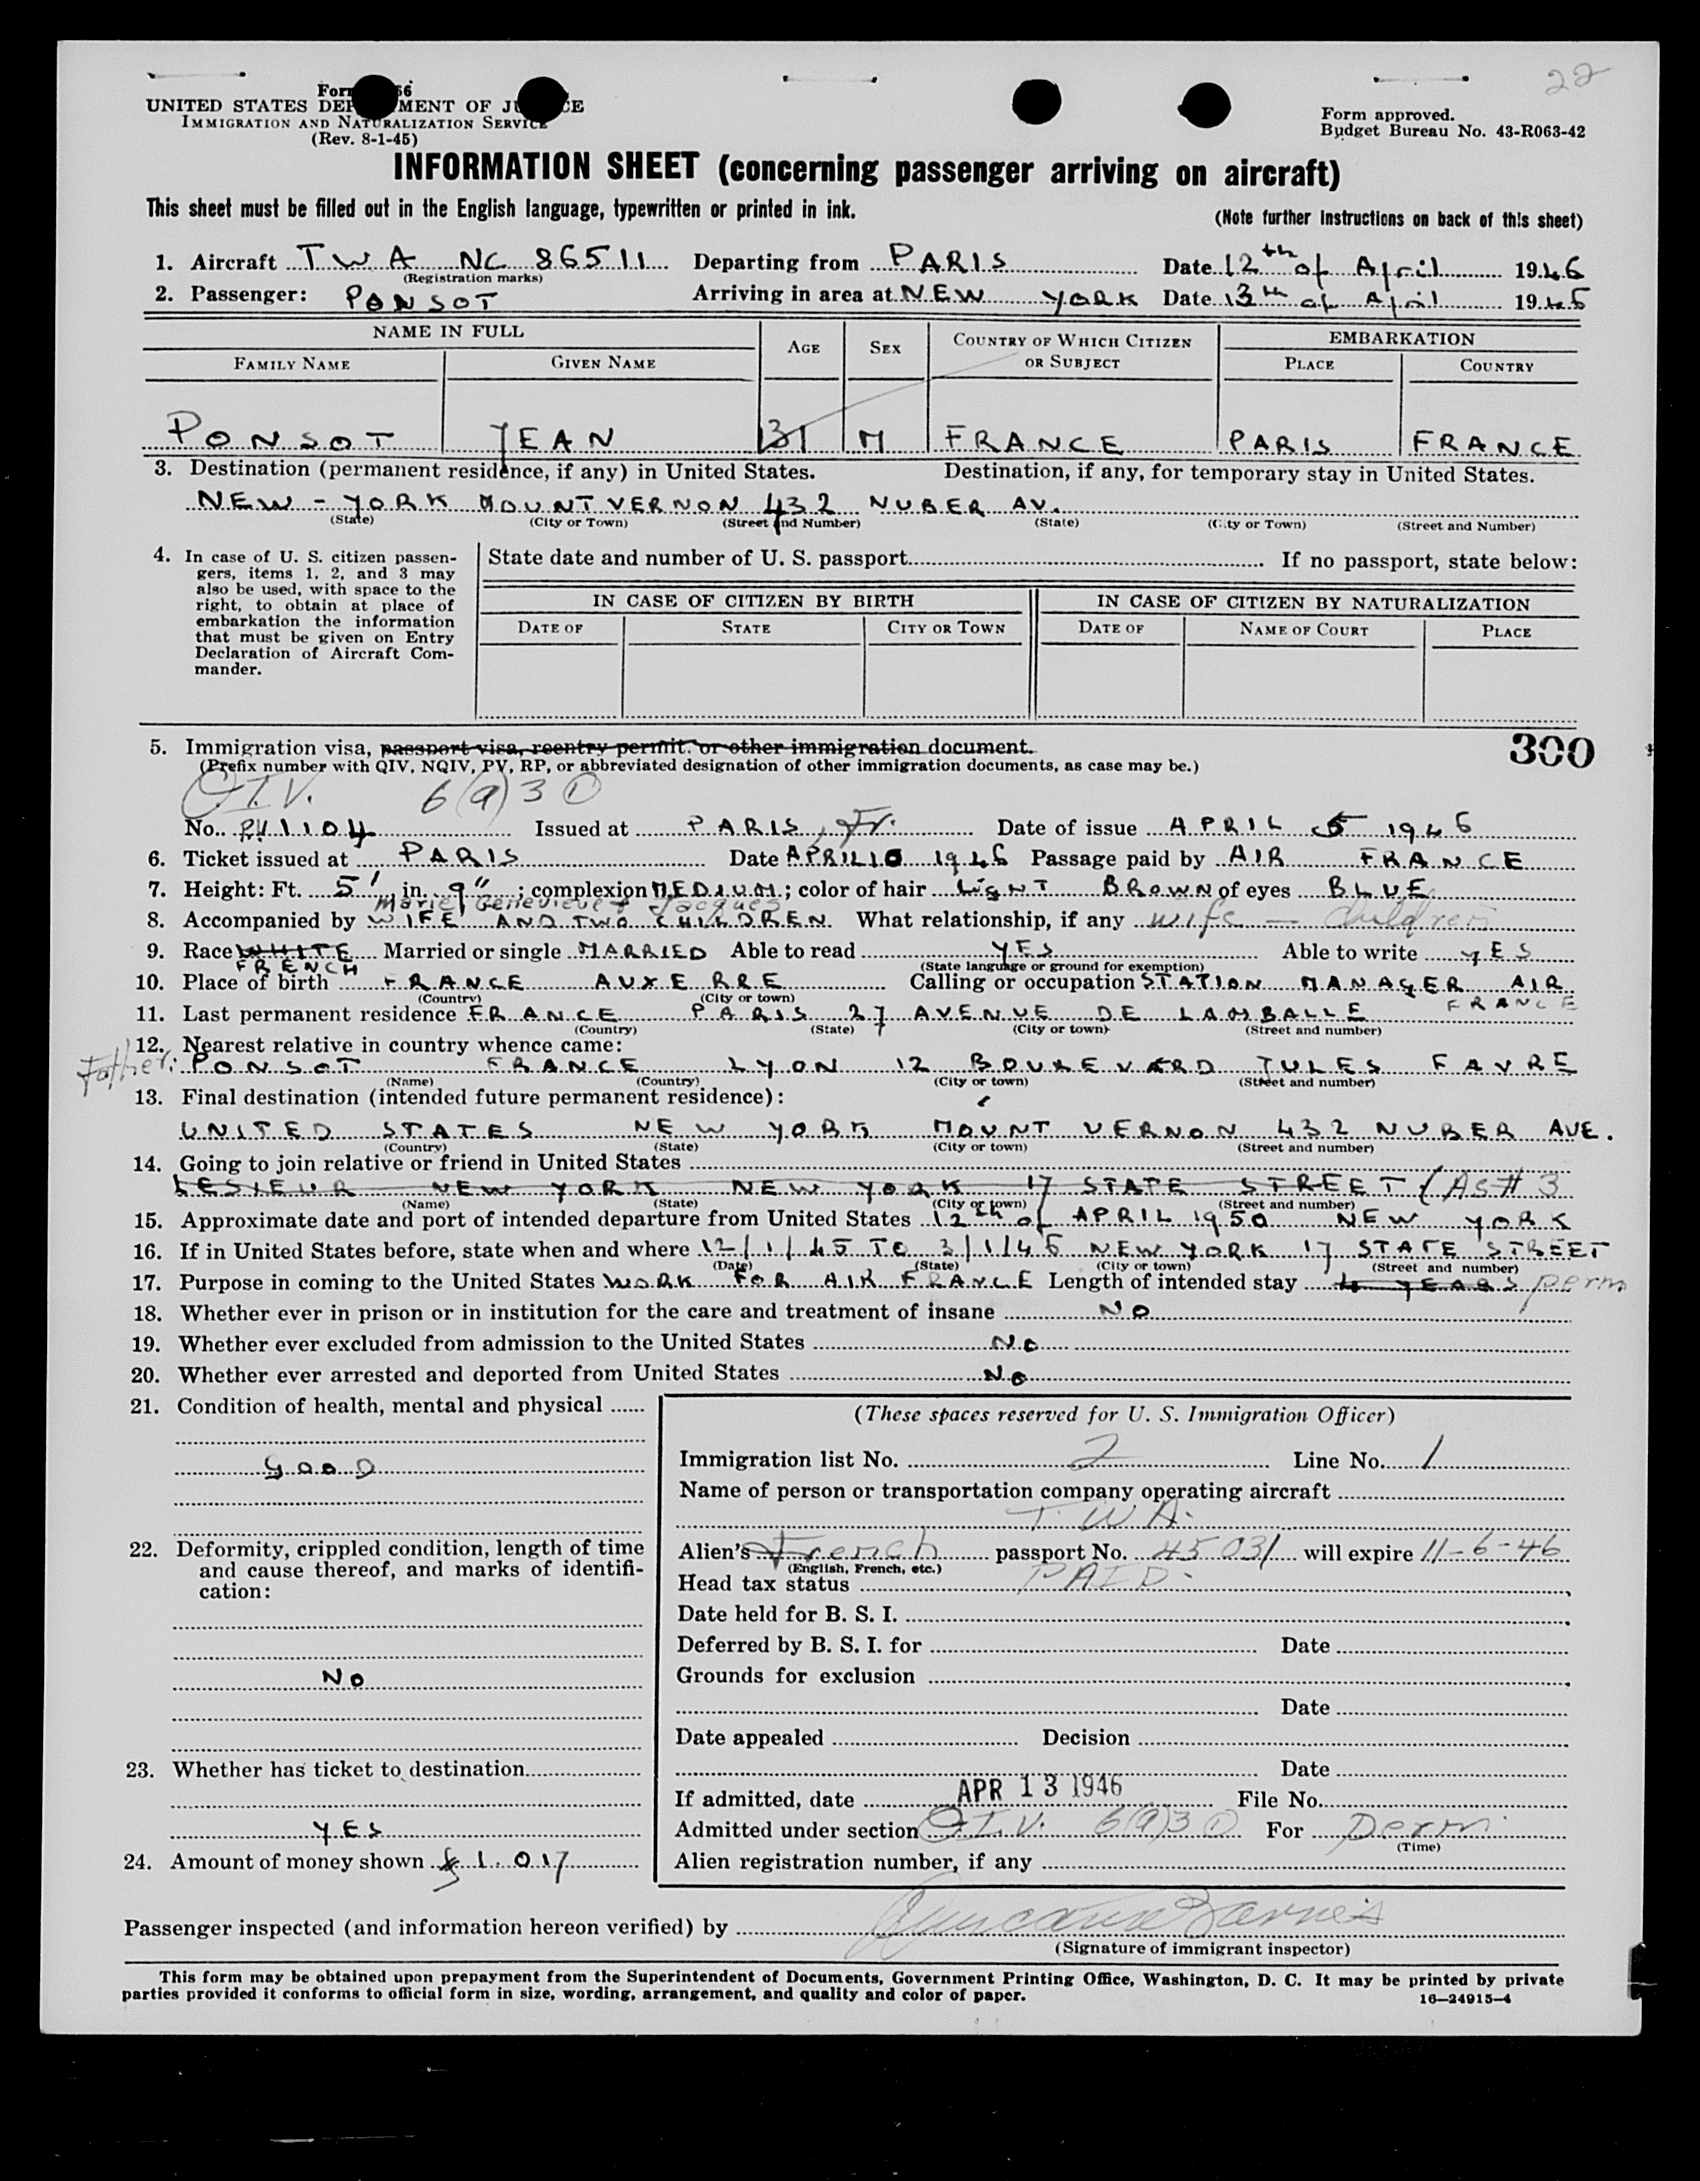 22
Form 66
UNITED STATES DEPARTMENT OF JUSTICE
IMMIGRATION AND NATURALIZATION SERVICE
(Rev. 8-1-45)
Form approved.
Budget Bureau No. 43-R063-42
INFORMATION SHEET (concerning passenger arriving on aircraft)
This sheet must be filled out in the English language, typewritten or printed in ink.
(Note further instructions on back of this sheet)
1. Aircraft TWA NC 86511 Departing from PARIS Date 12th of April 1946
(Registration marks)
2. Passenger: PONSOT Arriving in area at NEW YORK Date 13th of April 1946
NAME IN FULL AGE SEX COUNTRY OF WHICH CITIZEN OR SUBJECT EMBARKATION
FAMILY NAME GIVEN NAME PLACE COUNTRY
PONSOT JEAN 31 M FRANCE PARIS FRANCE
3. Destination (permanent residence, if any) in United States. Destination, if any, for temporary stay in United States.
NEW-YORK MOUNT VERNON 432 NUBER AV.
(State) (City or Town) (Street and Number) (State) (City or Town) (Street and Number)
4. In case of U. S. citizen passen-
gers, items 1, 2, and 3 may
also be used, with space to the
right, to obtain at place of
embarkation the information
that must be given on Entry
Declaration of Aircraft Com-
mander.
State date and number of U. S. passport If no passport, state below:
IN CASE OF CITIZEN BY BIRTH IN CASE OF CITIZEN BY NATURALIZATION
DATE OF STATE CITY OR TOWN DATE OF NAME OF COURT PLACE
5. Immigration visa, passport visa, reentry permit, or other immigration document.
300
(Prefix number with QIV, NQIV, PV, RP, or abbreviated designation of other immigration documents, as case may be.)
Q.I.V. 6(a)3 1
No. P.V. 1104 Issued at PARIS, Fr. Date of issue APRIL 5 1946
6. Ticket issued at PARIS Date APRIL 10 1946 Passage paid by AIR FRANCE
7. Height: Ft. 5' in. 9"; complexion MEDIUM; color of hair LIGHT BROWN of eyes BLUE
Marie, Genevieve & Jacques
8. Accompanied by WIFE AND TWO CHILDREN What relationship, if any wife - children
9. Race WHITE Married or single MARRIED Able to read YES Able to write YES
FRENCH
(State language or ground for exemption)
10. Place of birth FRANCE AUXERRE Calling or occupation STATION MANAGER AIR
FRANCE
(Country) (City or town)
11. Last permanent residence FRANCE PARIS 27 AVENUE DE LAMBALLE
(Country) (State) (City or town) (Street and number)
12. Nearest relative in country whence came:
Father: PONSOT FRANCE LYON 12 BOULEVARD JULES FAVRE
(Name) (Country) (City or town) (Street and number)
13. Final destination (intended future permanent residence):
UNITED STATES NEW YORK MOUNT VERNON 432 NUBER AVE.
(Country) (State) (City or town) (Street and number)
14. Going to join relative or friend in United States
LESIEUR NEW YORK NEW YORK 17 STATE STREET (AS # 3
(Name) (State) (City or town) (Street and number)
15. Approximate date and port of intended departure from United States 12th of APRIL 1950 NEW YORK
16. If in United States before, state when and where 12/1/45 TO 3/1/46 NEW YORK 17 STATE STREET
(Date) (State) (City or town) (Street and number)
17. Purpose in coming to the United States WORK FOR AIR FRANCE Length of intended stay 4 YEARS perm
18. Whether ever in prison or in institution for the care and treatment of insane NO
19. Whether ever excluded from admission to the United States NO
20. Whether ever arrested and deported from United States NO
21. Condition of health, mental and physical
GOOD
22. Deformity, crippled condition, length of time
and cause thereof, and marks of identifi-
cation:
NO
23. Whether has ticket to destination
YES
24. Amount of money shown $ 1.017
(These spaces reserved for U. S. Immigration Officer)
Immigration list No. 2 Line No. 1
Name of person or transportation company operating aircraft
T.W.A.
Alien's French passport No. 45031 will expire 11-6-46
(English, French, etc.)
Head tax status PAID.
Date held for B. S. I.
Deferred by B. S. I. for Date
Grounds for exclusion
Date
Date appealed Decision
Date
If admitted, date APR 13 1946 File No.
Admitted under section Q.I.V. 6(a)3 1 For Perm
(Time)
Alien registration number, if any
Passenger inspected (and information hereon verified) by
(Signature of immigrant inspector)
This form may be obtained upon prepayment from the Superintendent of Documents, Government Printing Office, Washington, D. C. It may be printed by private
parties provided it conforms to official form in size, wording, arrangement, and quality and color of paper.
16—24915-4